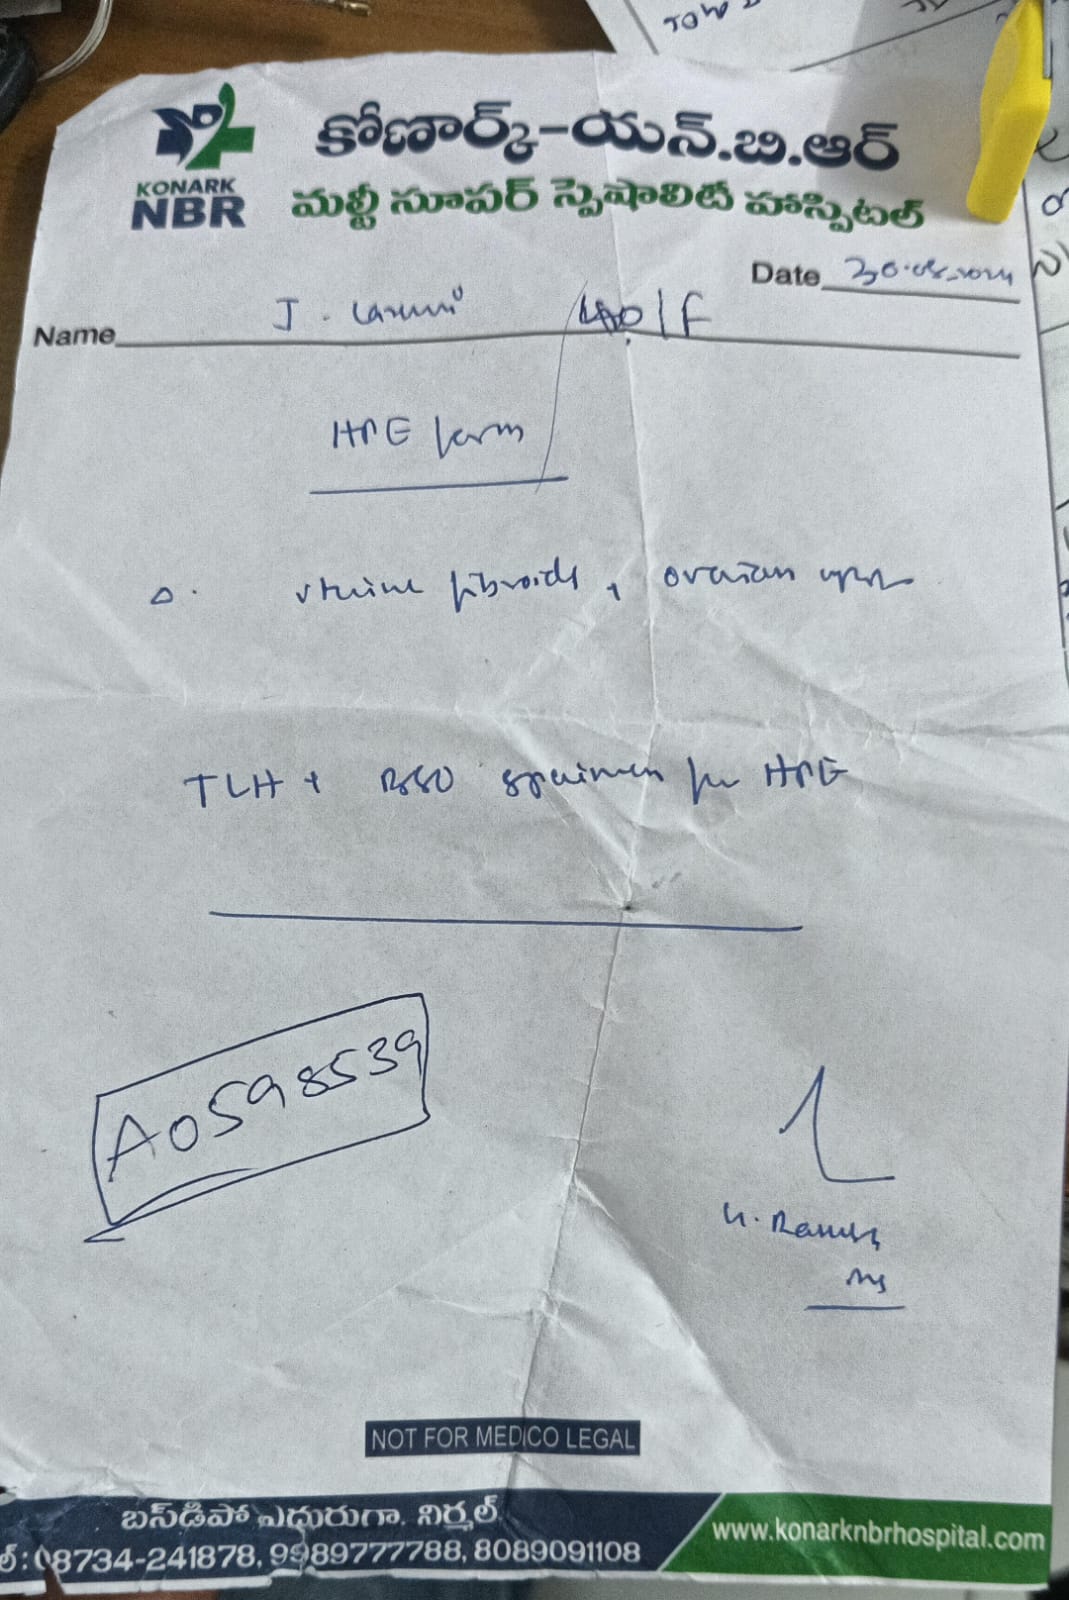 KONARK
NBR
కోణార్క్-యన్.బి.ఆర్
మల్టీ సూపర్ స్పెషాలిటీ హాస్పిటల్
Date
Name J. Laxmi 40/F
HPE form
Δ. uterine fibroids, ovarian
TLH + BSO specimen for HPE
A0598539
NOT FOR MEDICO LEGAL
బస్‌డిపో ఎదురుగా. నిర్మల్
08734-241878, 9989777788, 8089091108
www.konarknbrhospital.com